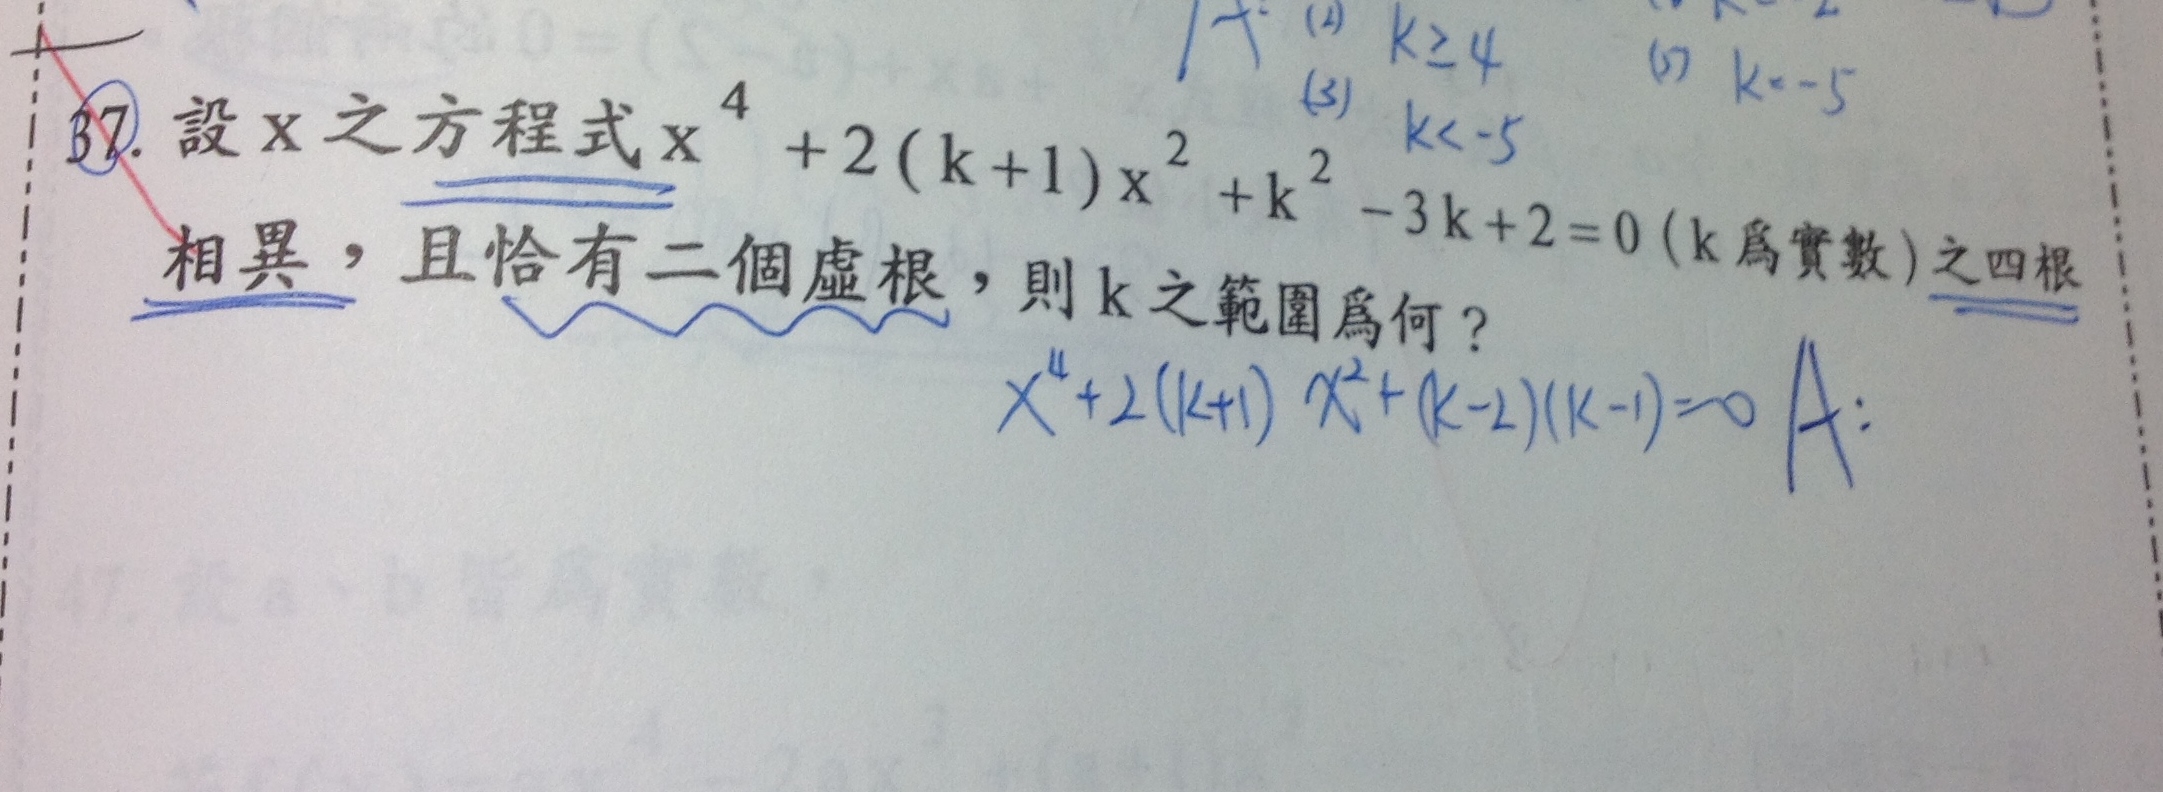 A: (2) k≥4
(5) k=-5
(3) k<-5
37. 設x之方程式x⁴+2(k+1)x²+k²-3k+2=0(k爲實數)之四根
相異，且恰有二個虛根，則k之範圍爲何？
x⁴+2(k+1)x²+(k-2)(k-1)=0 A: